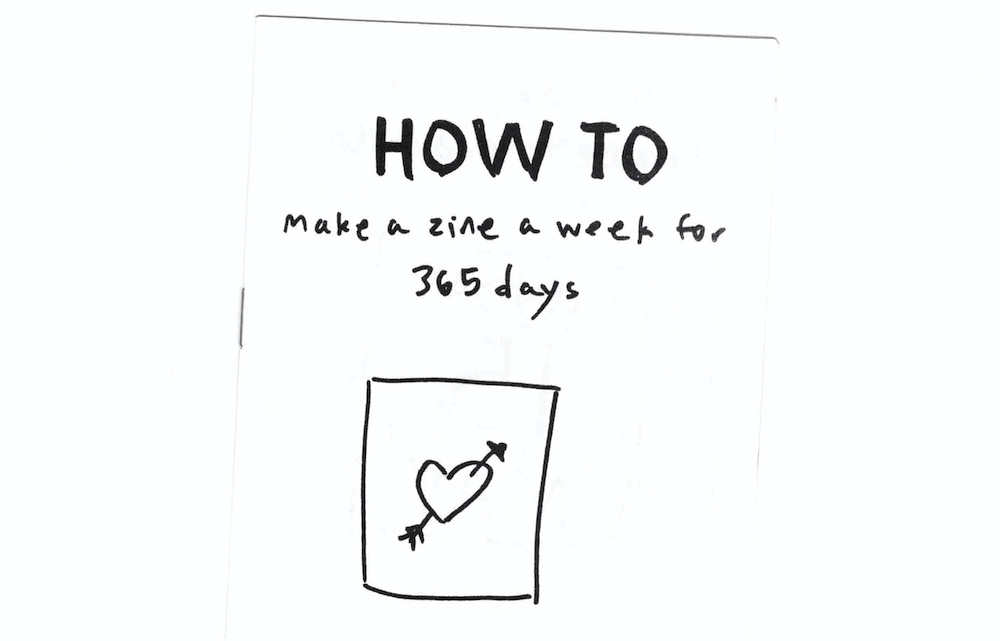 HOW TO
make a zine a week for
365 days